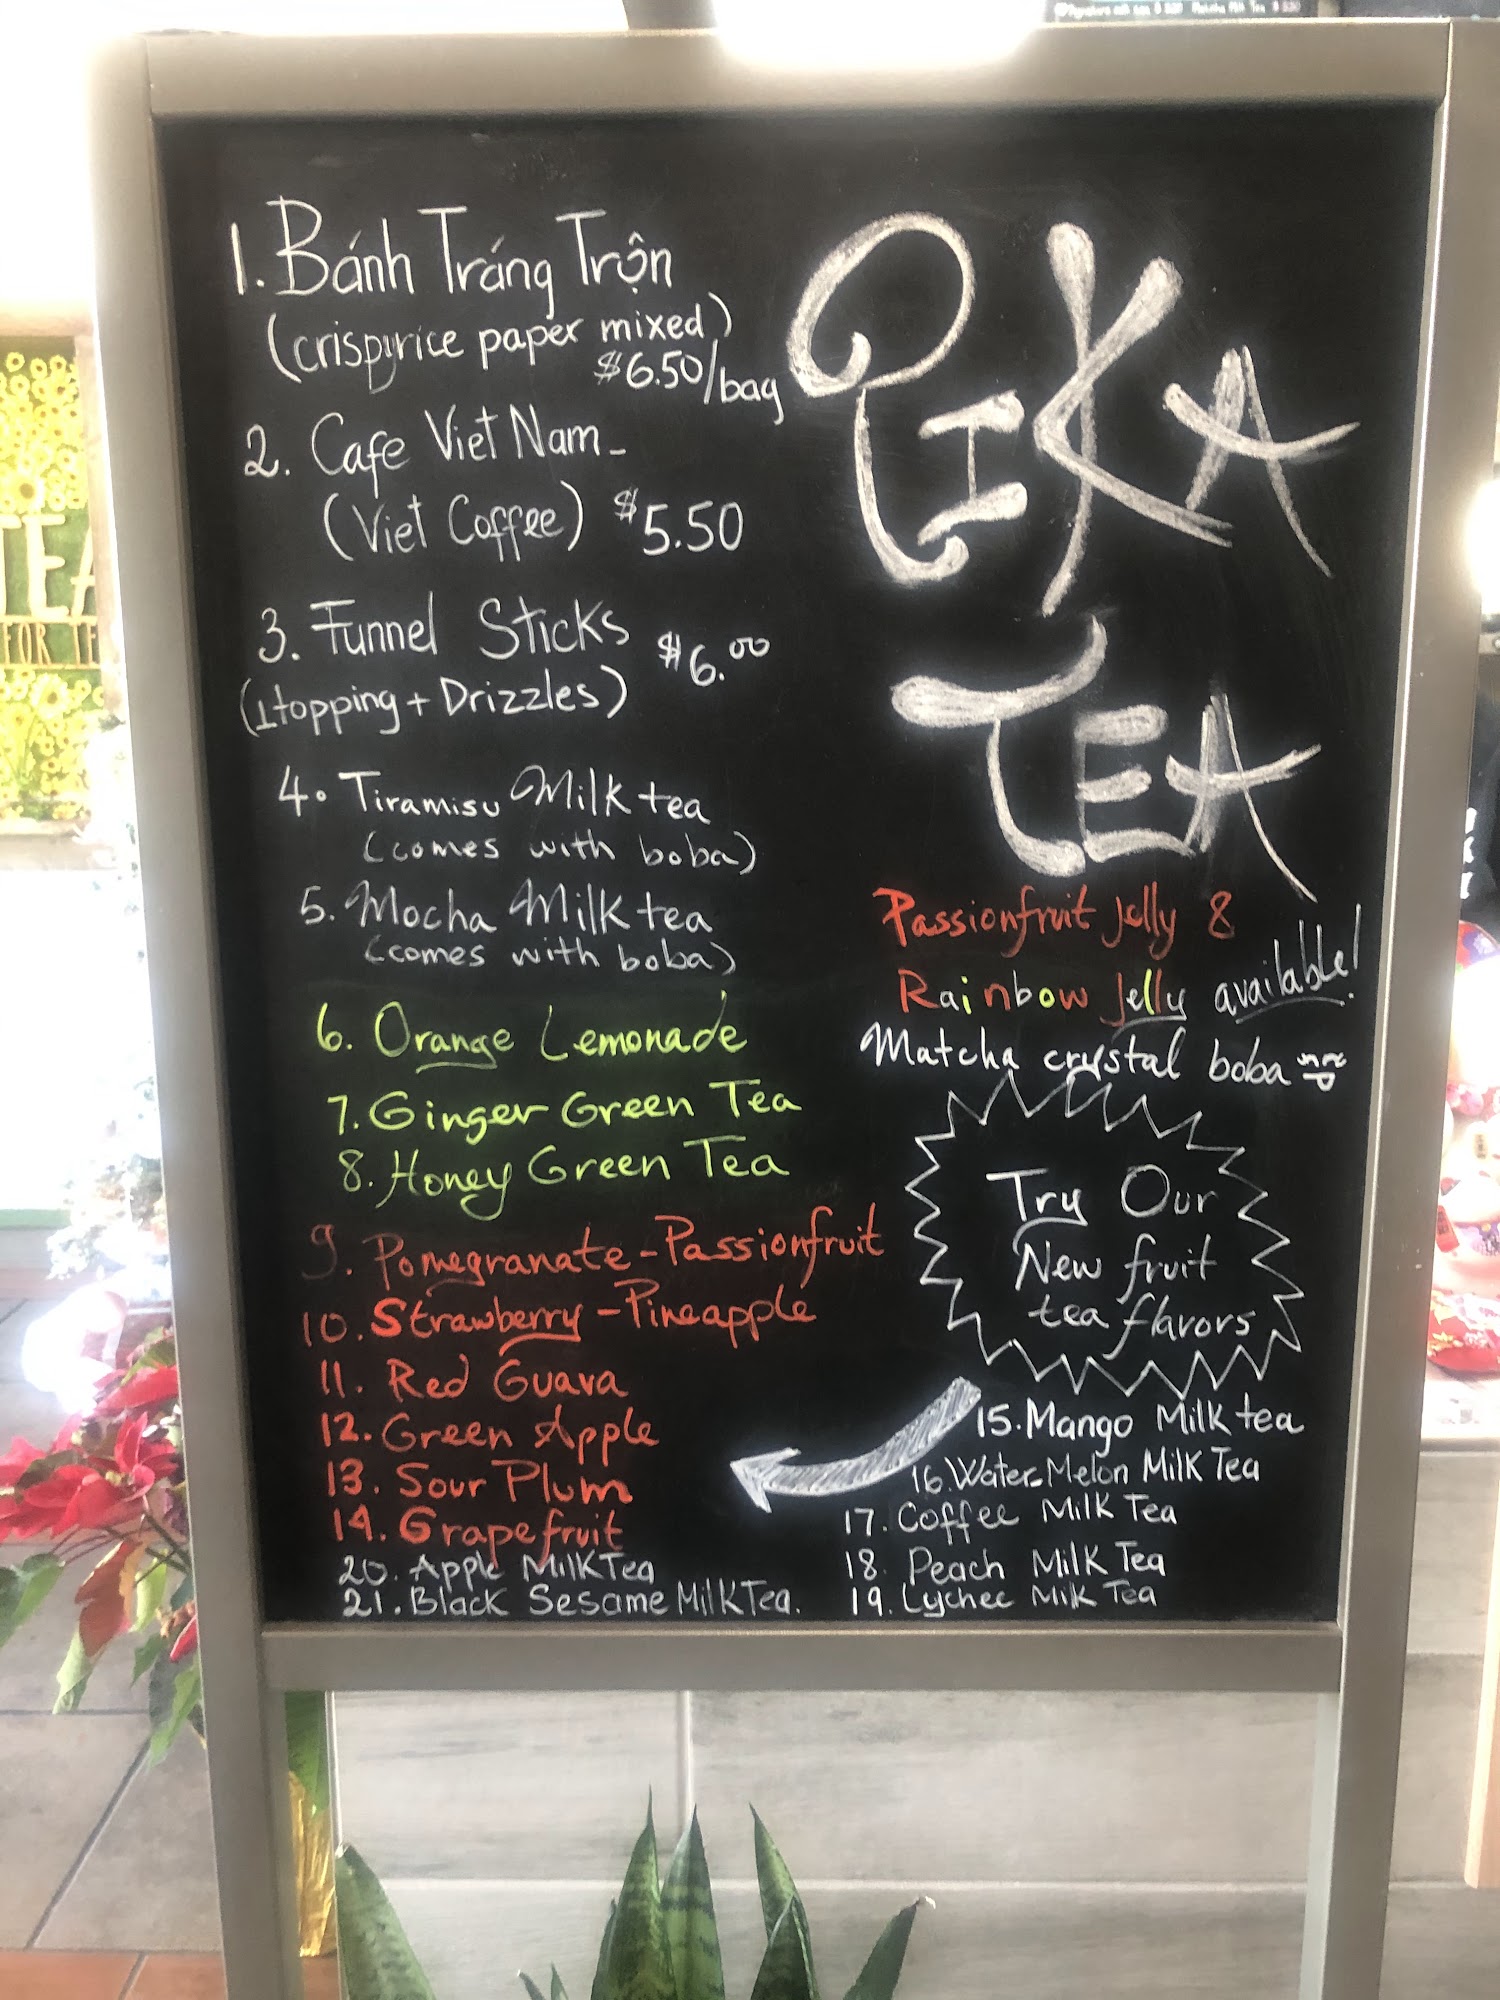 1. Bánh Tráng Trộn
(crispyrice paper mixed)
$6.50/bag
2. Cafe Viet Nam -
(Viet Coffee) $5.50
3. Funnel Sticks $6.00
(1topping + Drizzles)
4. Tiramisu Milk tea
(comes with boba)
5. Mocha Milk tea
(comes with boba)
6. Orange Lemonade
7. Ginger Green Tea
8. Honey Green Tea
9. Pomegranate - Passionfruit
10. Strawberry - Pineapple
11. Red Guava
12. Green Apple
13. Sour Plum
14. Grapefruit
20. Apple Milk Tea
21. Black Sesame Milk Tea.
PIKA
TEA
Passionfruit Jelly &
Rainbow Jelly available!
Matcha crystal boba
Try Our
New fruit
tea flavors
15. Mango Milk tea
16. Water Melon Milk Tea
17. Coffee Milk Tea
18. Peach Milk Tea
19. Lychee Milk Tea
TEA
Matcha Milk Tea